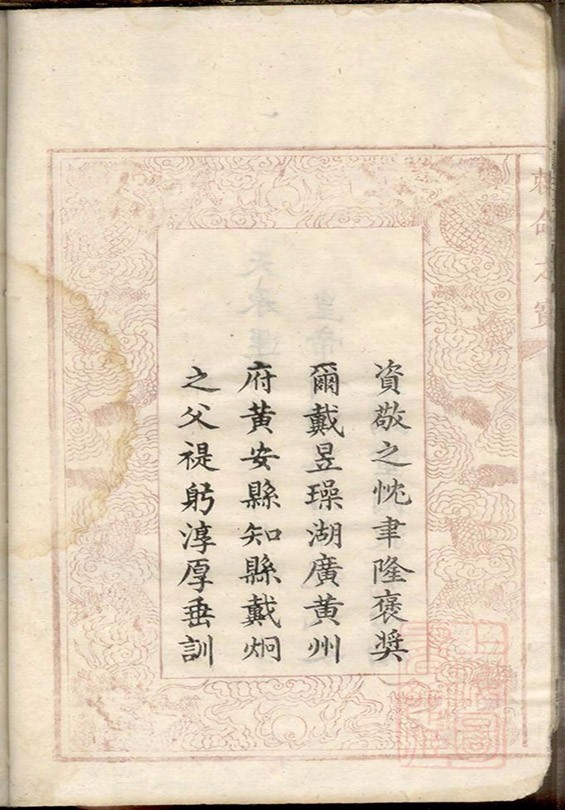 資敬之忱聿隆褒獎
爾戴昱璪湖廣黃州
府黃安縣知縣戴炯
之父禔躬淳厚垂訓